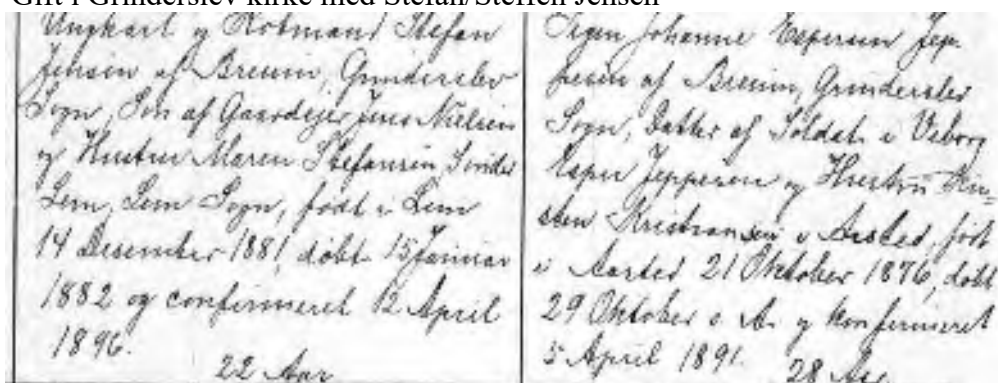 Gift i Grinderslev kirke med Stefan/Steffen Jensen
Ungkarl og Rotmand Stefan
Jensen af Breum, Grinderslev
Sogn, Søn af Gaardejer Jens Nielsen
og Hustru Maren Stefansen, Sønder
Lem, Lem Sogn, født i Lem
14 Desember 1881, døbt 15 Januar
1882 og confirmeret 12 April
1896.
22 Aar
Pigen Johanne Espersen Jep-
pesen af Breum, Grinderslev
Sogn, Datter af Soldat i Viborg
Esper Jeppesen og Hustru Kir-
sten Kristiansen i Aasted, født
i Aasted 21 Oktober 1876, døbt
29 Oktober s. A. og konfirmeret
5 April 1891.
28 Aar